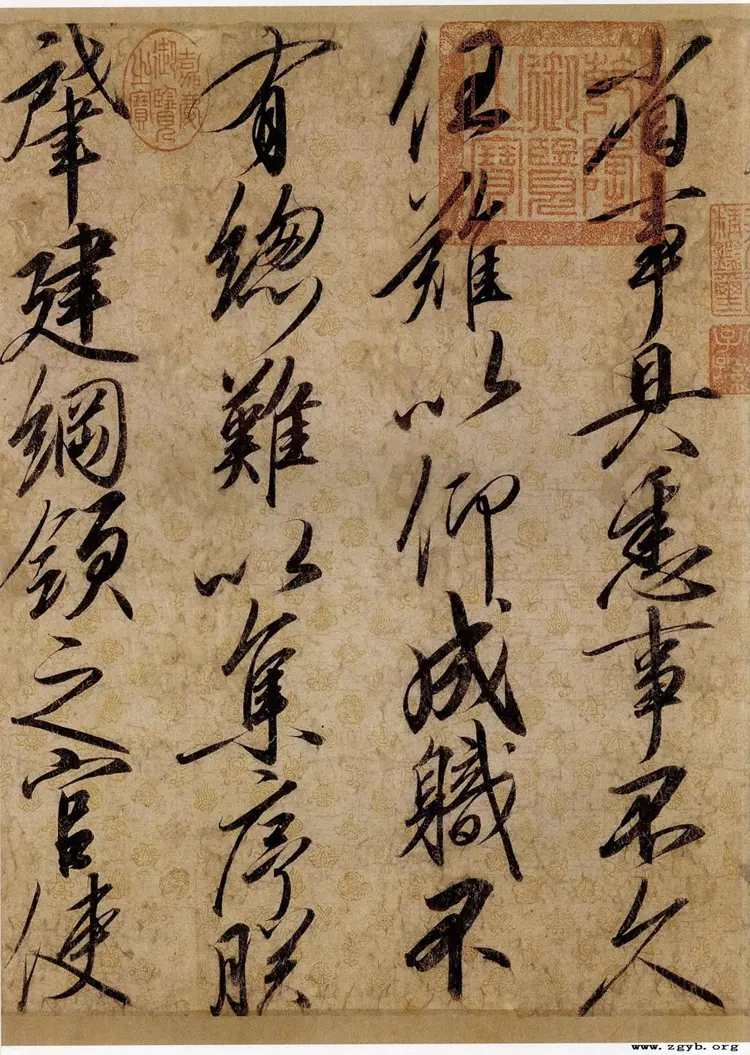 省事具悉事不久
任難以仰成職不
有總難以集序朕
肇建綱領之官使
乾隆御覽之寶
嘉慶御覽之寶
精鑑璽
子孫
www.zgyb.org